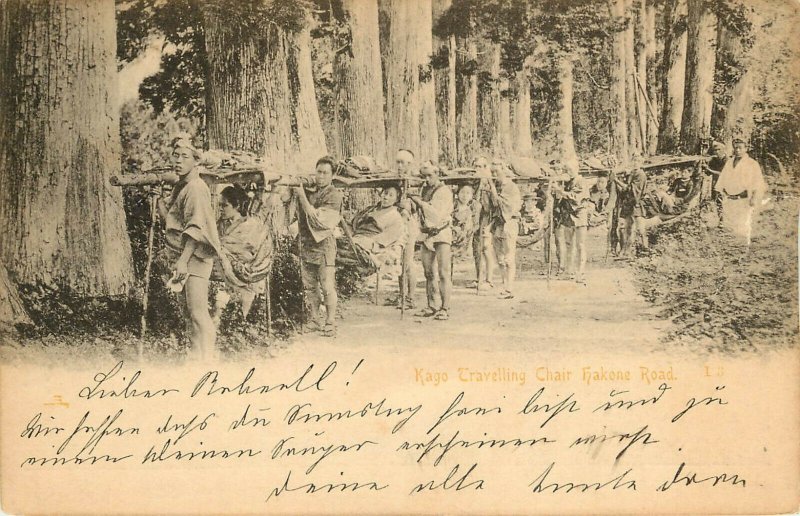 Kago Travelling Chair Hakone Road.
Lieber !
Wir hoffen daß du Samstag frei bist und zu
einem kleinen erscheinen wirst.
deine alte